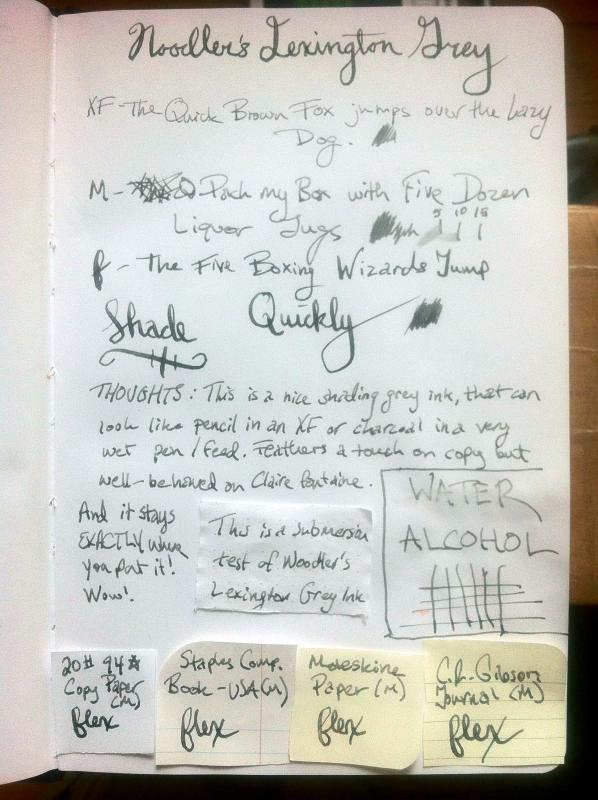 Noodler's Lexington Grey
XF - The Quick Brown Fox jumps over the Lazy
Dog.
M - Pack my Box with Five Dozen
5 10 15
Liquor Jugs
f - The Five Boxing Wizards Jump
Shade Quickly
THOUGHTS: This is a nice shading grey ink, that can
look like pencil in an XF or charcoal in a very
wet pen/feed. Feathers a touch on copy but
well-behaved on Claire fontaine.
And it stays
EXACTLY where
you put it!
Wow!
This is a submersion
test of Noodler's
Lexington Grey Ink
WATER
ALCOHOL
20# 94*
Copy Paper
(M)
flex
Staples Comp.
Book - USA (M)
flex
Moleskine
Paper (M)
flex
C.R. Gibson
Journal (M)
flex